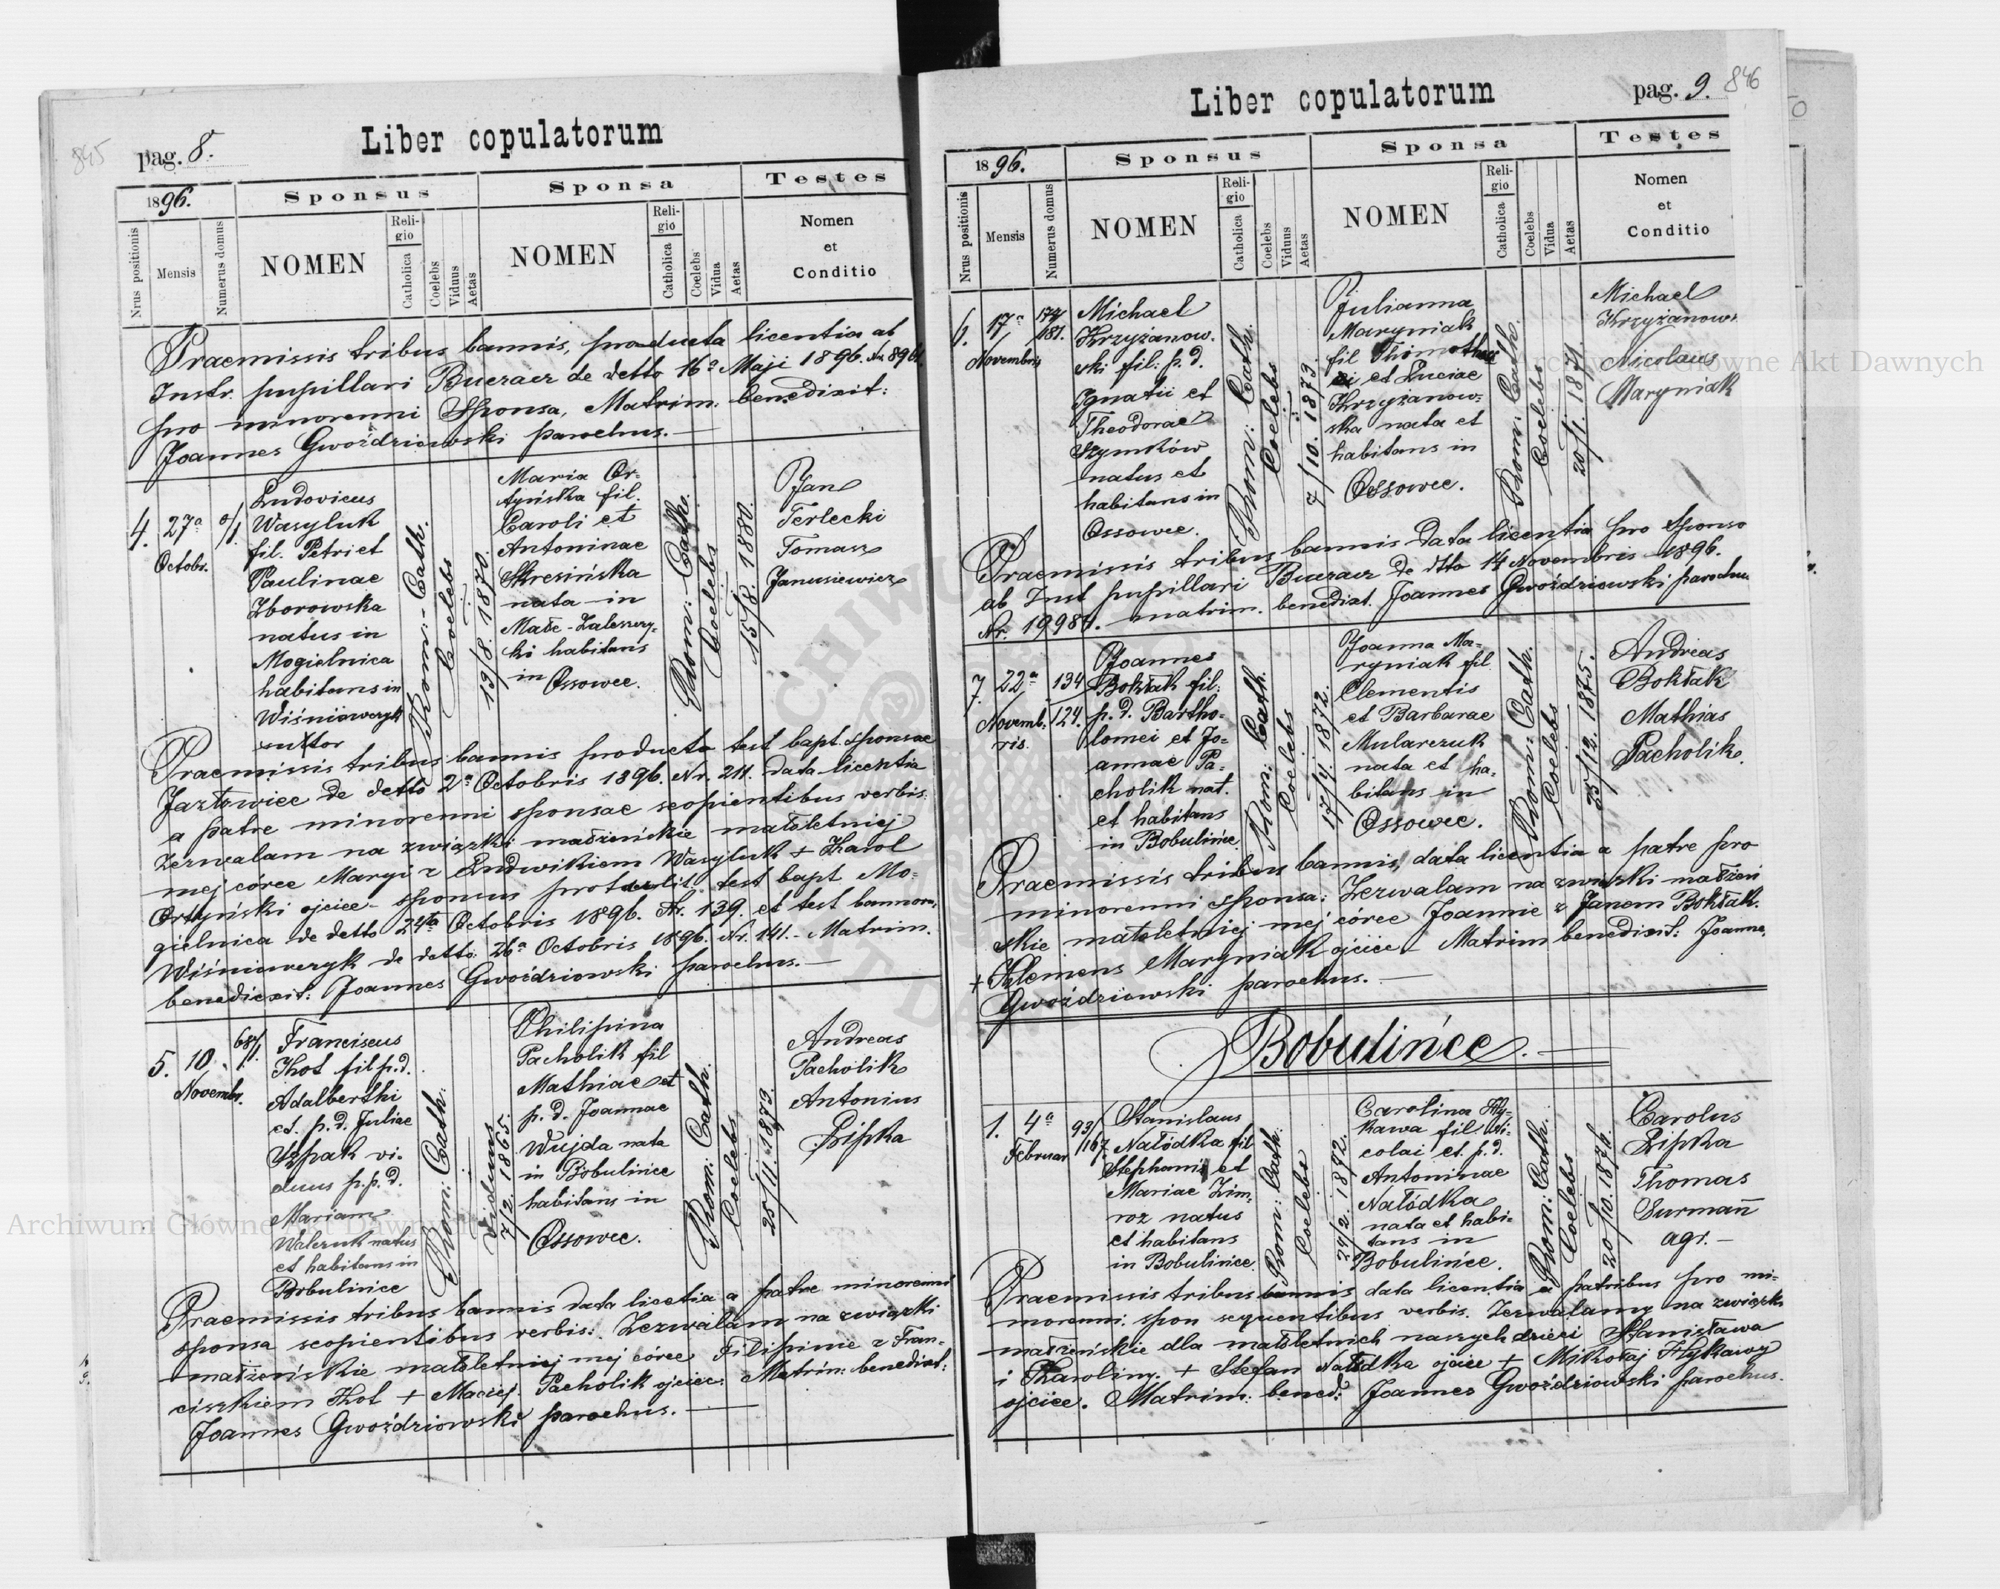 845
pag. 8.
Liber copulatorum
1896.
Sponsus
Sponsa
Testes
Nrus positionis
Mensis
Numerus domus
NOMEN
Religio
Catholica
Coelebs
Viduus
Aetas
NOMEN
Religio
Catholica
Coelebs
Vidua
Aetas
Nomen
et
Conditio
Praemissis tribus bannis, producta licentia ab
Instr. pupillari Buczacz de detto 16a Maji 1896. Nr. 8961.
pro minorenni Sponsa, Matrim. benedixit:
Joannes Gwoździowski parochus.
4.
27a
Octobr.
Ludovicus
Wasyluk
fil. Petri et
Paulinae
Zborowska
natus in
Mogielnica
habitans in
Wiśniowczyk
Rom: Cath.
Coelebs
13/8. 1870.
Maria Or-
tyńska fil.
Caroli et
Antoninae
Skresińska
nata in
Małe-Zaleszczy-
ki habitans
in Ossowce.
Rom: Cath.
Coelebs
15/8. 1880.
Jan
Terlecki
Tomasz
Janusiewicz
Praemissis tribus bannis producto test bapt. sponsae
Jazłowiec de detto 2a Octobris 1896. Nr. 211. data licentia
a patre minorenni sponsae sequentibus verbis:
Zezwalam na związki małżeńskie małoletniej
mej córce Maryi z Ludwikiem Wasyluk + Karol
Ortyński ojciec sponsus test bapt Mo-
gielnica de detto 24ta Octobris 1896. Nr. 139. et test bannorum
Wiśniowczyk de detto 26a Octobris 1896. Nr. 141. - Matrim.
benedixit. Joannes Gwoździowski parochus.
5.
10
Novembr.
68/1.
Franciscus
Kot fil p.d.
Adalberthi
et. p.d. Juliae
Szpak vi-
duus p.p.d.
Mariam
Walczuk natus
et habitans in
Bobulińce
Rom: Cath:
Viduus
7/2. 1865.
Philipina
Pacholik fil
Mathiae et
p.d. Joannae
Wujda nata
in Bobulińce
habitans in
Ossowce.
Rom: Cath.
Coelebs
25/11. 1873.
Andreas
Pacholik
Antonius
Lipka
Praemissis tribus bannis data licetia a patre minorenni
sponsa verbis: Zezwalam na związki
małżeńskie małoletniej mej córce Filipinie z Fran-
ciszkiem Kot + Maciej Pacholik ojciec: Matrim: benedixit:
Joannes Gwoździowski parochus.
846
pag. 9.
Liber copulatorum
1896.
Sponsus
Sponsa
Testes
Nrus positionis
Mensis
Numerus domus
NOMEN
Religio
Catholica
Coelebs
Viduus
Aetas
NOMEN
Religio
Catholica
Coelebs
Vidua
Aetas
Nomen
et
Conditio
6.
17a
Novembris
174
181.
Michael
Krzyżanow-
ski fil: p.d.
Ignatii et
Theodorae
Szymków
natus et
habitans in
Ossowce.
Rom: Cath.
Coelebs
7/10. 1873.
Julianna
Maryniak
fil Thimothe
ei et Luciae
Krzyżanow-
ska nata et
habitans in
Ossowce.
Rom: Cath.
Coelebs
20/1. 1877.
Michael
Krzyżanow
Nicolaus
Maryniak
Praemissis tribus bannis data licentia pro Sponso
ab Inst pupillari Buczacz de dtto 14 Novembris 1896.
Nr. 19986. matrim. benedixt. Joannes Gwoździowski parochus
7.
22a
Novemb-
ris.
134
124.
Joannes
Boktak fil:
p.d. Bartho-
lomei et Jo-
annae Pa-
cholik nat.
et habitans
in Bobulińce.
Rom: Cath.
Coelebs
17/4. 1872.
Joanna Ma-
ryniak fil
Clementis
et Barbarae
Mularczuk
nata et ha-
bitans in
Ossowce.
Rom: Cath.
Coelebs
25/12. 1875.
Andreas
Boktak
Mathias
Pacholik.
Praemissis tribus bannis, data licentia a patre pro
minorenni sponsa: Zezwalam na związki małżeń
skie małoletniej mej córce Joannie z Janem Boktak.
+ Klemens Maryniak ojciec - Matrim benedixit: Joannes
Gwoździowski parochus.
Bobulińce.
1.
4a
Februar
93/
167.
Stanislaus
Nałódka fil
Stephani et
Mariae Zim-
roz natus
et habitans
in Bobulińce
Rom: Cath.
Coelebs
24/2. 1872.
Carolina Hly-
kawa fil Ni-
colai et. p.d.
Antoninae
Nałódka
nata et habi-
tans in
Bobulińce.
Rom: Cath.
Coelebs
20/10. 1876.
Carolus
Lipka
Thomas
Surmań
agr. -
Praemissis tribus bannis data licentia a patribus pro mi-
norenni. spon sequentibus verbis. Zezwalamy na związki
małżeńskie dla małoletnich naszych dzieci Stanisława
i Karoliny. + Stefan Nałódka ojciec + Mikołaj Hlykawy
ojciec. Matrim: bened: Joannes Gwoździowski parochus.
Archiwum Główne Akt Dawnych
Archiwum Główne Akt Dawnych